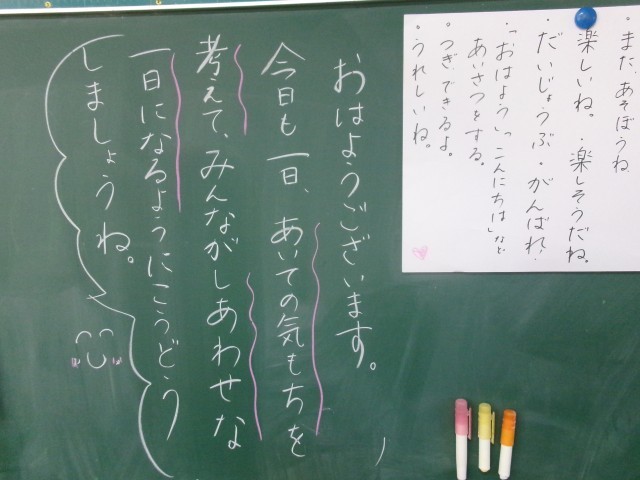 ・また、あそぼうね
・楽しいね。・楽しそうだね。
・だいじょうぶ・がんばれ!
・「おはよう」、「こんにちは」など
あいさつをする。
・つぎ、できるよ。
・うれしいね。
おはようございます。
今日も一日、あいての気もちを
考えて、みんながしあわせな
一日になるようにこうどう
しましょうね。